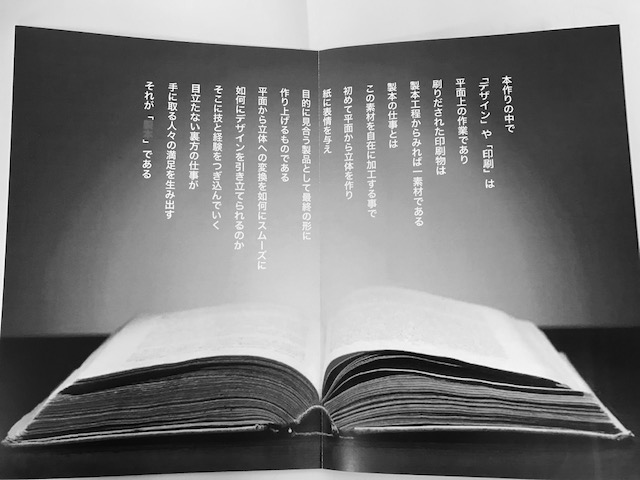 本作りの中で
「デザイン」や「印刷」は
平面上の作業であり
刷りだされた印刷物は
製本工程からみれば一素材である
製本の仕事とは
この素材を自在に加工する事で
初めて平面から立体を作り
紙に表情を与え
目的に見合う製品として最終の形に
作り上げるものである
平面から立体への変換を如何にスムーズに
如何にデザインを引き立てられるのか
そこに技と経験をつぎ込んでいく
目立たない裏方の仕事が
手に取る人々の満足を生み出す
それが「」である